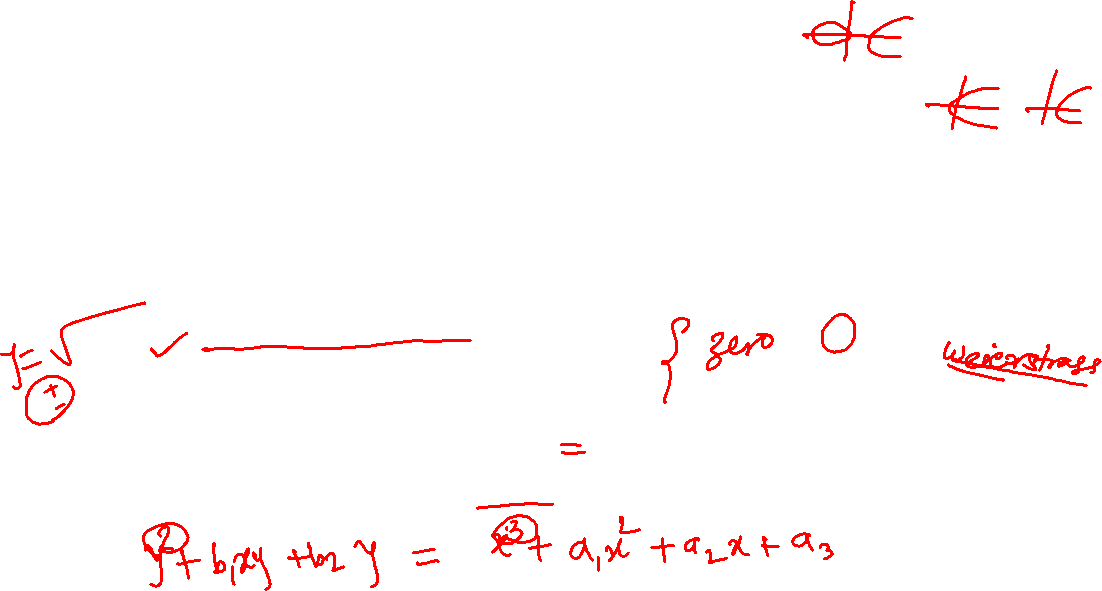 y = √ ✓
±
{ zero O
Weierstrass
=
y² + b₁xy + b₂y = x³ + a₁x² + a₂x + a₃